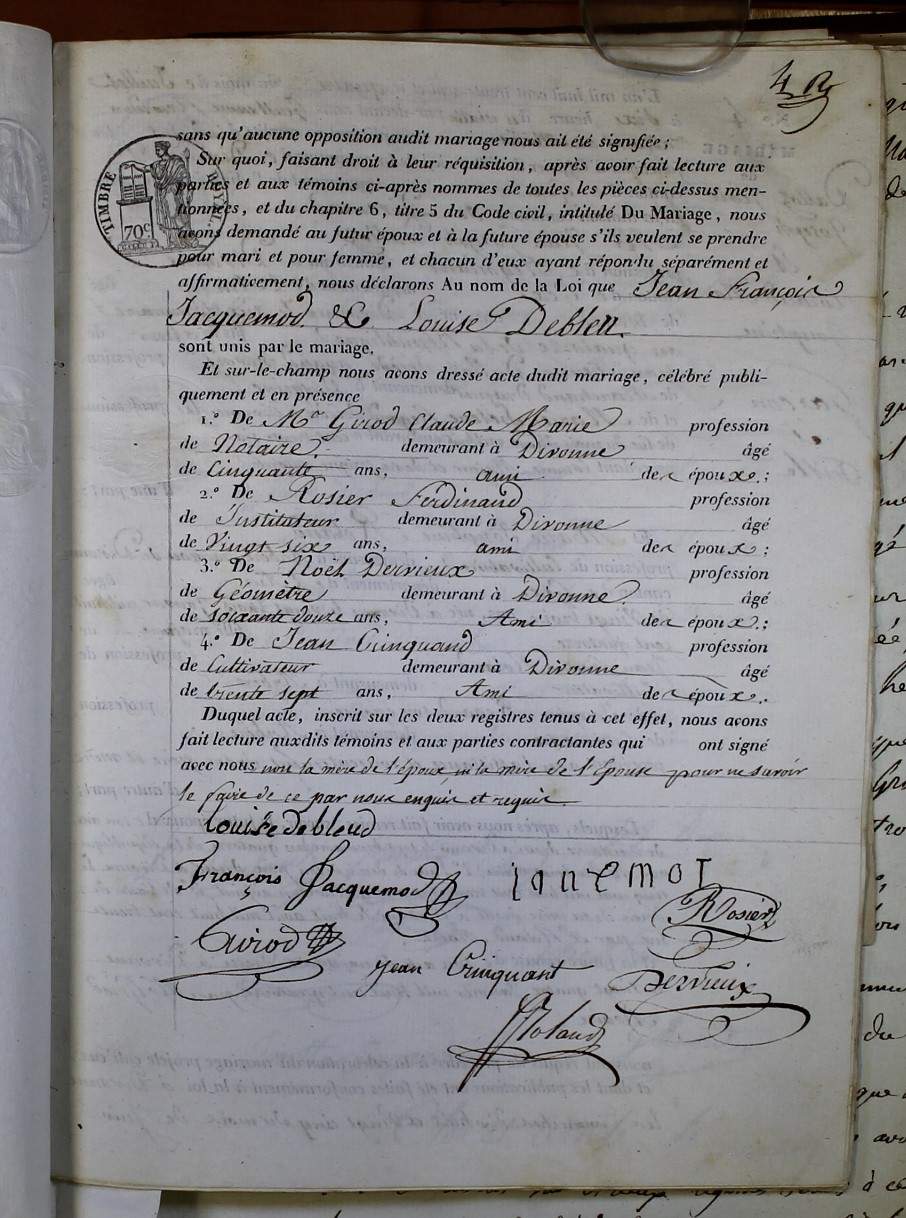 4
TIMBRE ROYAL
70c
sans qu'aucune opposition audit mariage nous ait été signifiée ;
Sur quoi, faisant droit à leur réquisition, après avoir fait lecture aux
parties et aux témoins ci-après nommes de toutes les pièces ci-dessus men-
tionnées, et du chapitre 6, titre 5 du Code civil, intitulé Du Mariage, nous
avons demandé au futur époux et à la future épouse s'ils veulent se prendre
pour mari et pour femme, et chacun d'eux ayant répondu séparément et
affirmativement, nous déclarons Au nom de la Loi que Jean François
Jacquemod. & Louise Deblen.
sont unis par le mariage.
Et sur-le-champ nous avons dressé acte dudit mariage, célébré publi-
quement et en présence
1.° De Mr Girod Claude Marie profession
de Notaire. demeurant à Divonne âgé
de Cinquante ans, ami des époux ;
2.° De Rosier Ferdinand profession
de Instituteur demeurant à Divonne âgé
de Vingt six ans, ami des époux ;
3.° De Noël Dervieux profession
de Géomètre demeurant à Divonne. âgé
de soixante douze ans, Ami des époux. ;
4.° De Jean Crinquand profession
de Cultivateur demeurant à Divonne âgé
de trente sept ans, Ami des époux.
Duquel acte, inscrit sur les deux registres tenus à cet effet, nous avons
fait lecture auxdits témoins et aux parties contractantes qui ont signé
avec nous non la mère de l'époux ni la mère de l'Epouse pour ne savoir
le faire de ce par nous enquis et requis.
Louise debleud
François Jacquemod janemot
Rosier
Girod
Jean Crinquant Dervieux
Roland